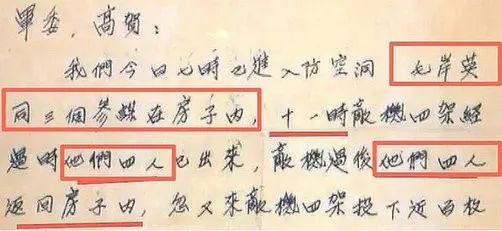 軍委，高賀：
我們今日七時已進入防空洞 毛岸英
同三個參謀在房子內，十一時敵機四架經
過時他們四人已出來，敵機過後他們四人
返回房子內，忽又來敵機四架投下近百枚